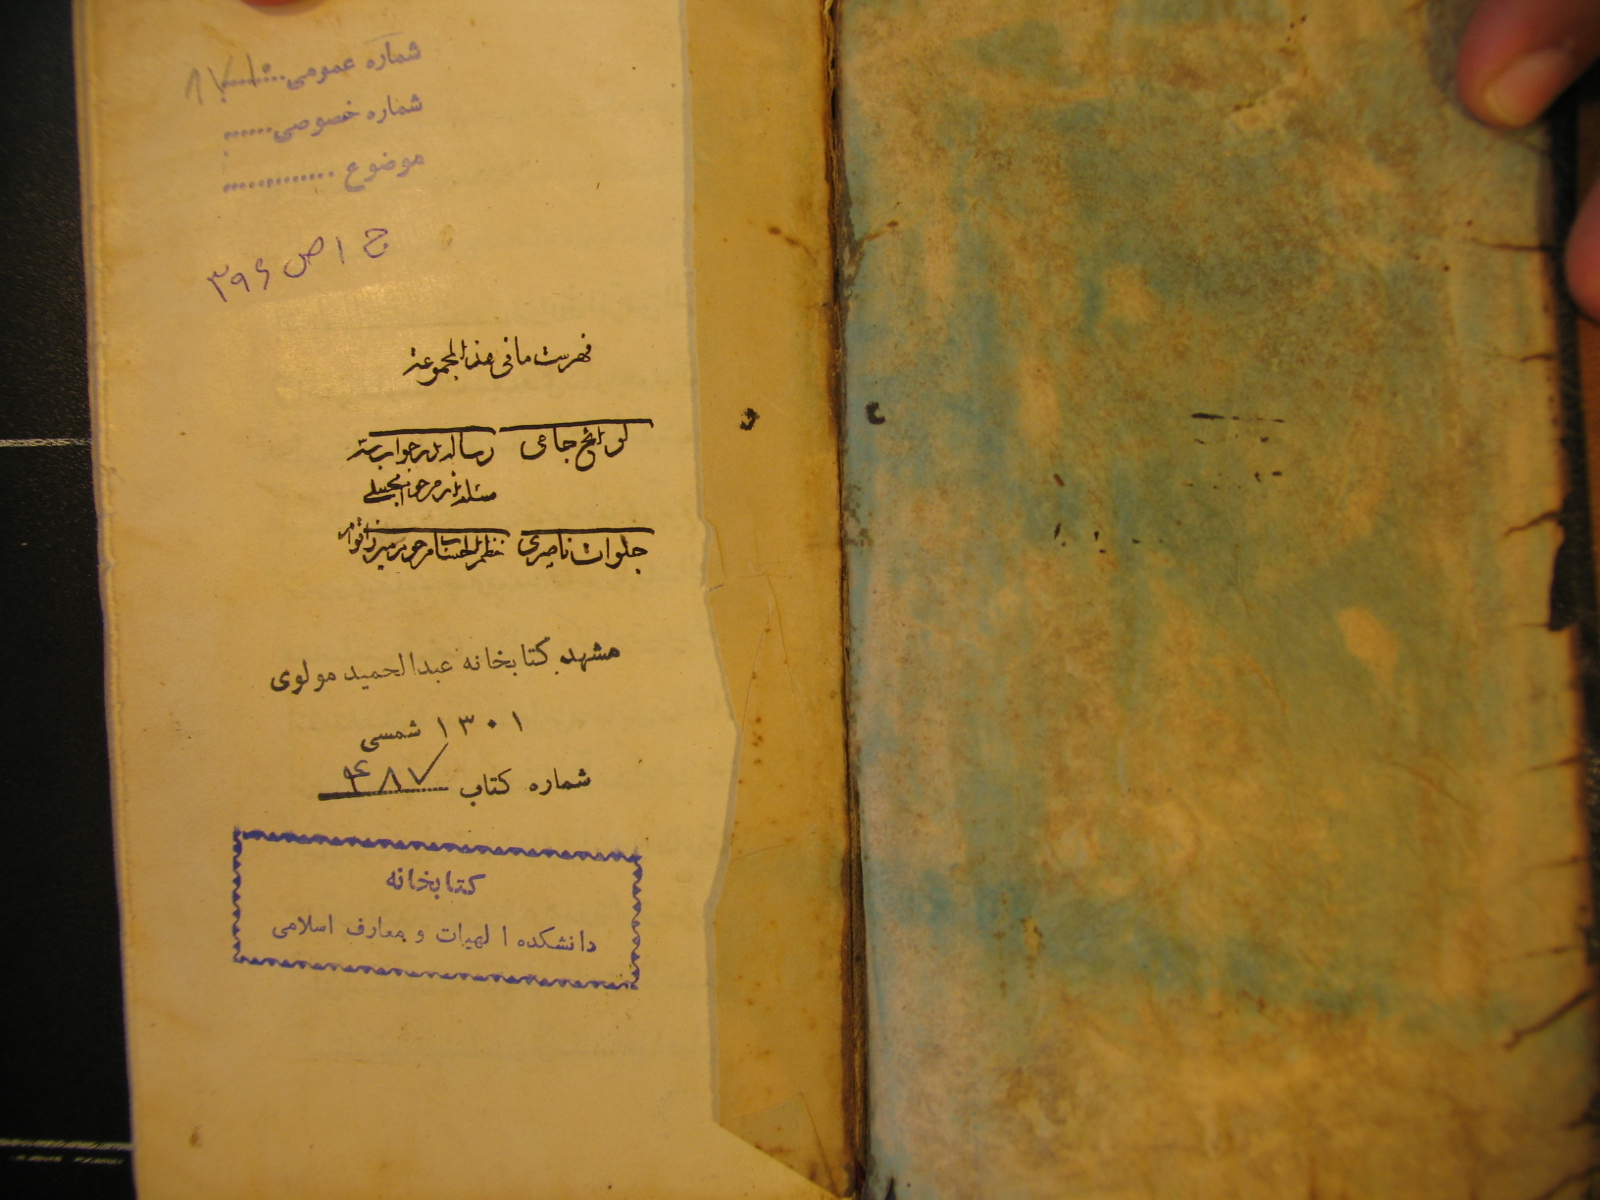 شماره عمومی
شماره خصوصی
موضوع
ج ۱ ص ۳۹۶
فهرست مافی هذه المجموعة
لوایح جامی رساله در جواب سه
مسئله از مرحوم مجلسی
جلوات ناصری
مشهد کتابخانه عبدالحمید مولوی
۱۳۰۱ شمسی
شماره کتاب ۴۸۷
کتابخانه
دانشکده الهیات و معارف اسلامی